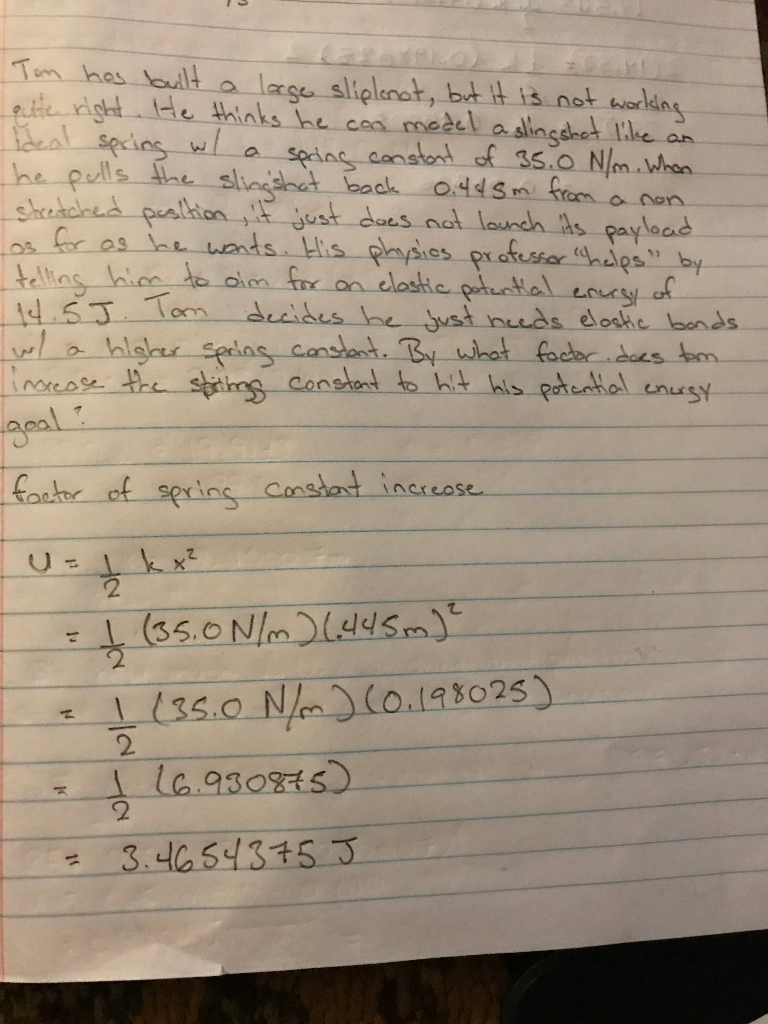 Tom has built a large sliplenot, but it is not working
quite right. He thinks he can model a slingshot like an
ideal spring w/ a spring constant of 35.0 N/m. When
he pulls the slingshot back 0.445m from a non
stretched position, it just does not launch its payload
as far as he wants. His physics professor "helps" by
telling him to aim for an elastic potential energy of
14.5 J. Tom decides he just needs elastic bands
w/ a higher spring constant. By what factor does tom
increase the springs constant to hit his potential energy
goal?
factor of spring constant increase
U = 1/2 k x²
= 1/2 (35.0 N/m)(.445m)²
= 1/2 (35.0 N/m)(0.198025)
= 1/2 (6.930875)
= 3.4654375 J